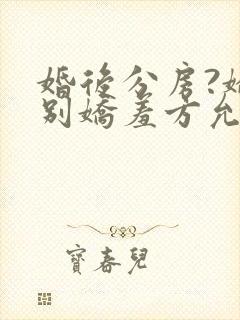 婚後分房?
別嬌羞方允
寶春兒